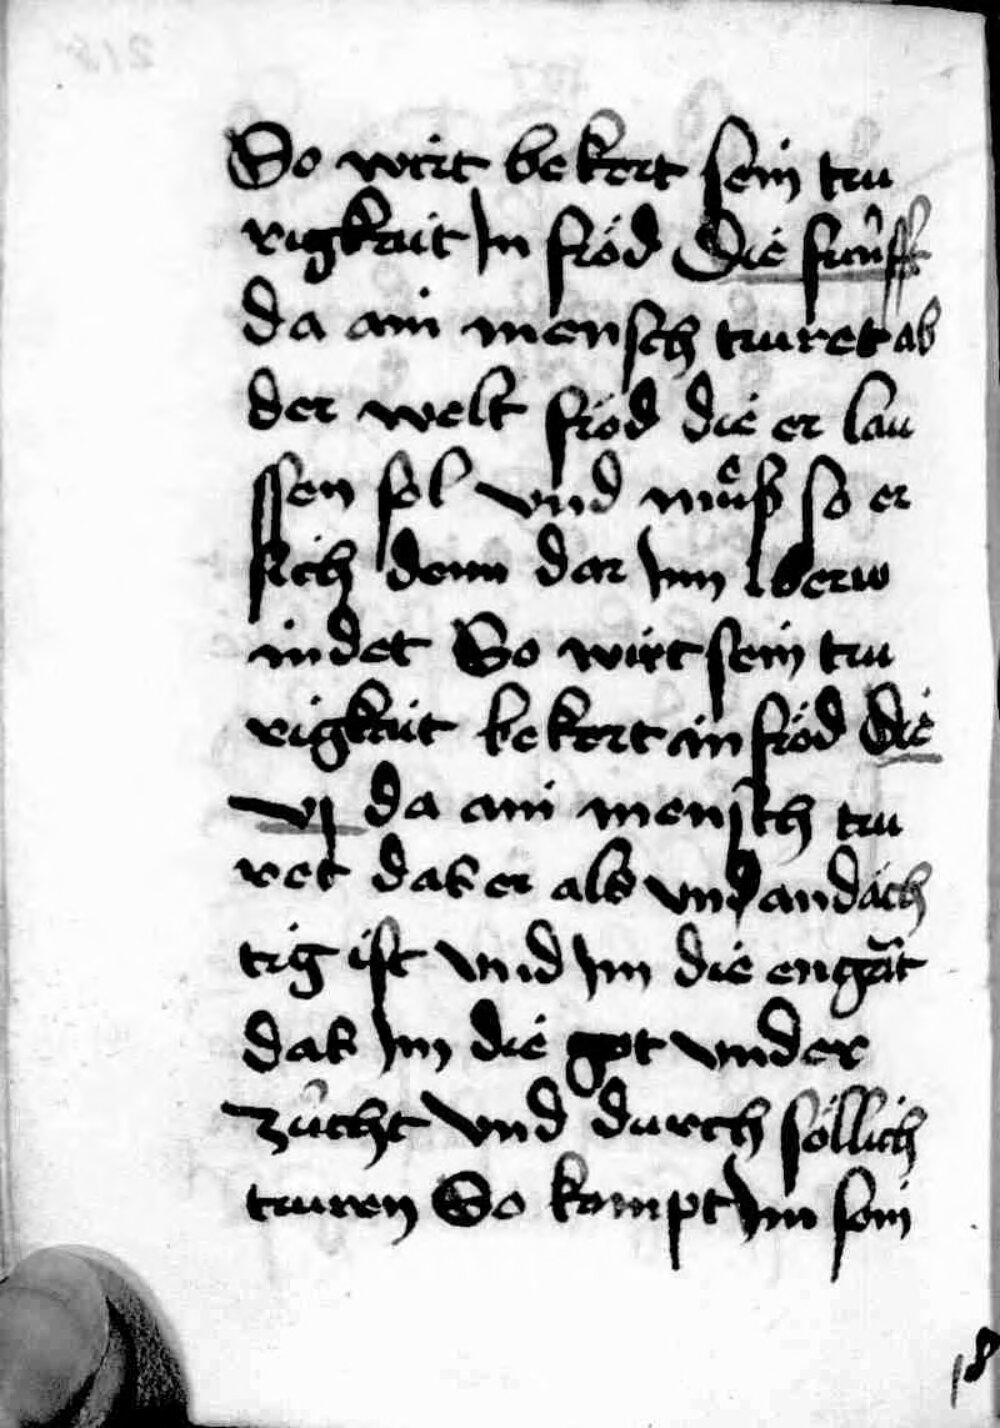 So wirt bekert sein tru
rigkait Jn fröd Die funff
da ain mensch truret ab
der welt fröd die er lau
ssen sol vnd müß so er
sich denn dar Jnn vberw
indet So wirt sein tru
rigkait bekert in fröd Die
vj da ain mensch tru
ret das er als vndandäch
tig ist vnd Jm die engät
das Jm die got vnder
zücht vnd durch söllich
truren So kompt Jm sein
18